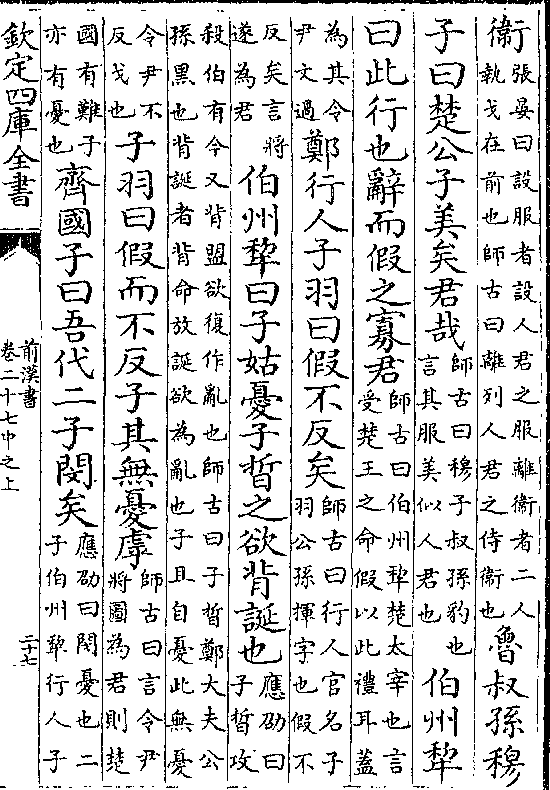 衞張晏曰設服者設人君之服離衞者二人執戈在前也師古曰離列人君之侍衞也魯叔孫穆
子曰楚公子美矣君哉師古曰穆子叔孫豹也言其服美似人君也伯州犂
曰此行也辭而假之寡君師古曰伯州犂楚太宰也言受楚王之命假以此禮耳蓋
為其令尹文過鄭行人子羽曰假不反矣師古曰行人官名子羽公孫揮字也假不
反矣言將遂為君伯州犂曰子姑憂子晳之欲背誕也應劭曰子晳攻
殺伯有令又背盟欲復作亂也師古曰子晳鄭大夫公孫黑也背誕者背命放誕欲為亂也子且自憂此無憂
令尹不反戈也子羽曰假而不反子其無憂虖師古曰言令尹將圖為君則楚
國有難子亦有憂也齊國子曰吾代二子閔矣應劭曰閔憂也二子伯州犂行人子
欽定四庫全書
前漢書
卷二十七中之上
三十七